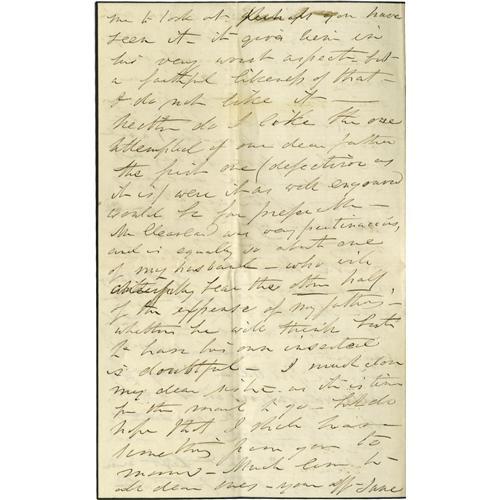 me to look at - Perhaps you have
seen it - it gives him in
his very worst aspect - but
a faithful likeness of that -
I do not like it —
neither do I like the one
attempted of our dear father
the first one (defective as
it is) were it as well engraved
would be far preferable -
Mr Cleaveland was very pertinacious,
and is equally so about one
of my husband - who will
cheerfully bear the other half
of the expense of my father's -
whether he will think best
to have his own inserted
is doubtful - I must close
my dear sister as it is time
for the mail to go - do
hope that I shall have
something from you to
morrow - Much love to
all dear ones - your aff - Jane